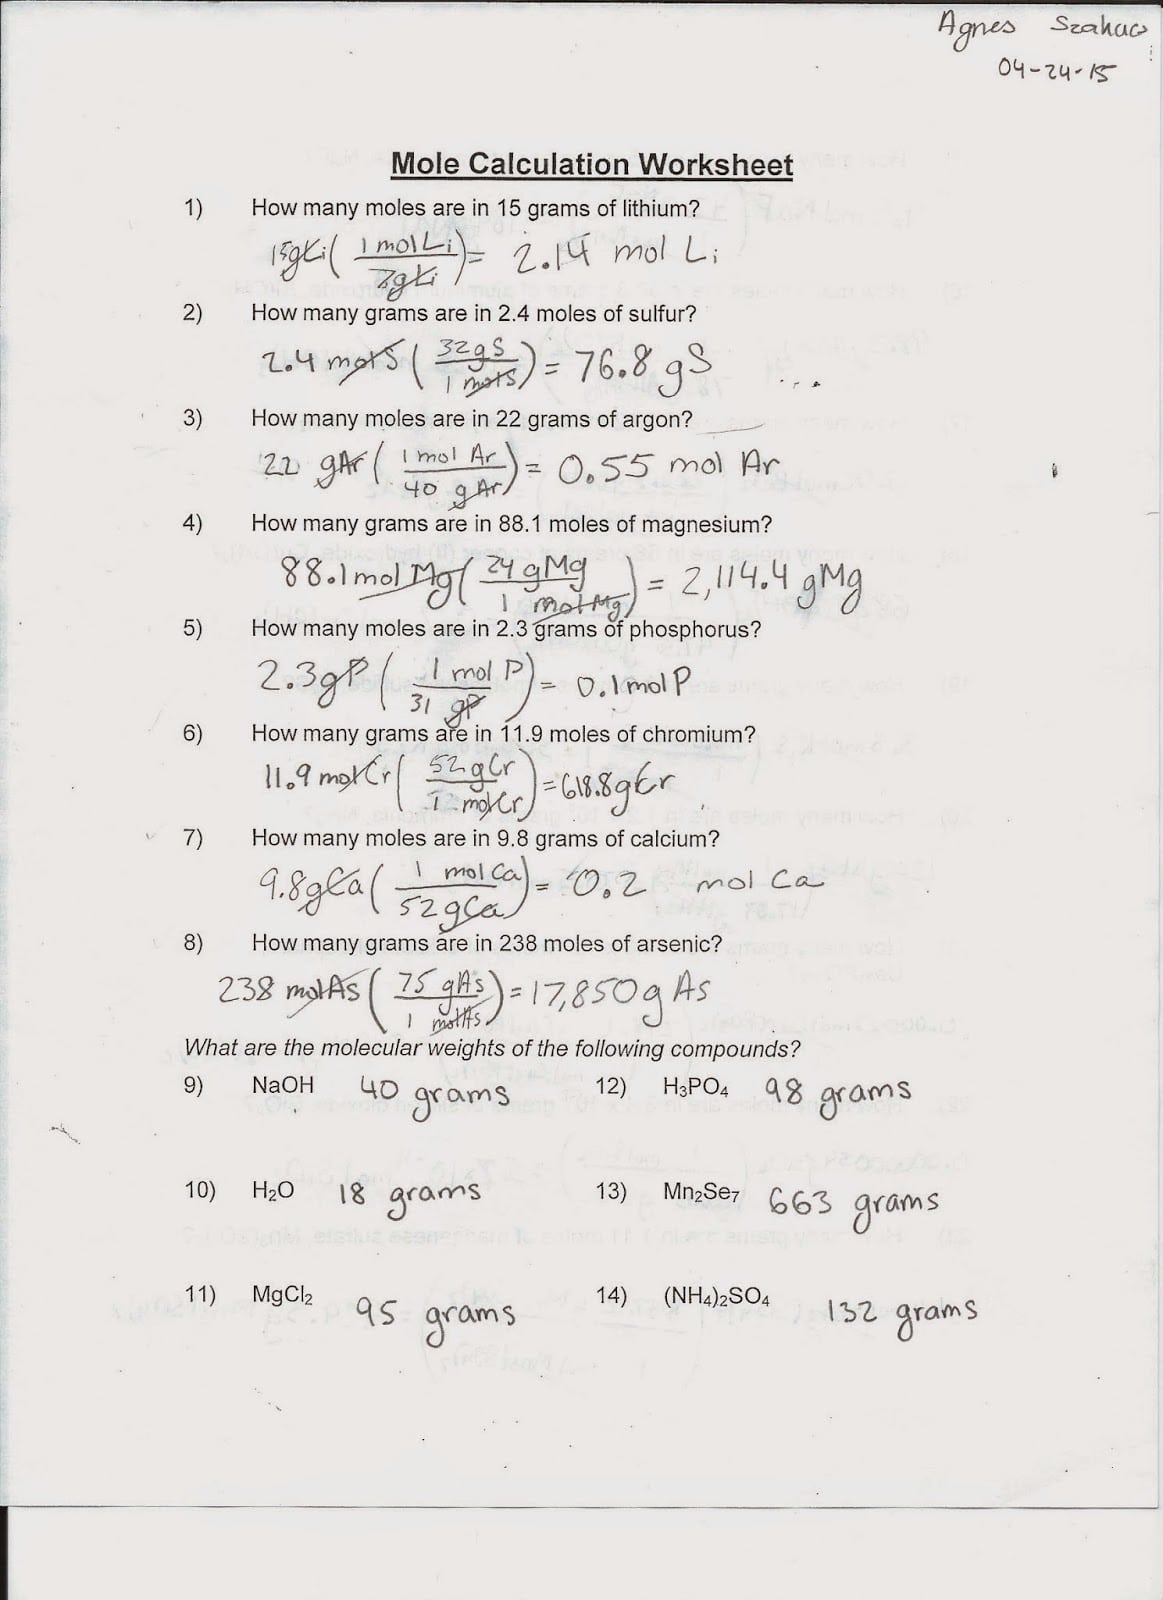 Agnes
04-24-15
Mole Calculation Worksheet
1) How many moles are in 15 grams of lithium?
15gLi( 1 mol Li / 7gLi ) = 2.14 mol Li
2) How many grams are in 2.4 moles of sulfur?
2.4 molS ( 32gS / 1 molS ) = 76.8 gS
3) How many moles are in 22 grams of argon?
22 gAr ( 1 mol Ar / 40 gAr ) = 0.55 mol Ar
4) How many grams are in 88.1 moles of magnesium?
88.1 mol Mg ( 24 gMg / 1 mol Mg ) = 2,114.4 gMg
5) How many moles are in 2.3 grams of phosphorus?
2.3gP ( 1 mol P / 31 gP ) = 0.1 mol P
6) How many grams are in 11.9 moles of chromium?
11.9 molCr ( 52gCr / 1 molCr ) = 618.8gCr
7) How many moles are in 9.8 grams of calcium?
9.8gCa ( 1 mol Ca / 52gCa ) = 0.2 mol Ca
8) How many grams are in 238 moles of arsenic?
238 molAs ( 75 gAs / 1 molAs ) = 17,850g As
What are the molecular weights of the following compounds?
9) NaOH 40 grams 12) H3PO4 98 grams
10) H2O 18 grams 13) Mn2Se7 663 grams
11) MgCl2 95 grams 14) (NH4)2SO4 132 grams